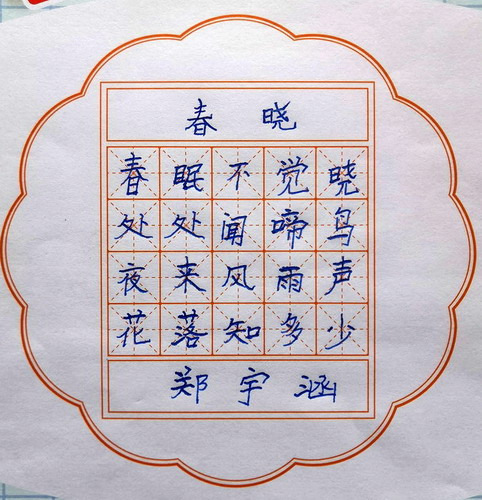 春晓
春眠不觉晓
处处闻啼鸟
夜来风雨声
花落知多少
郑宇涵